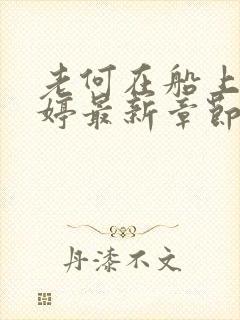 老何在船上
婷最新章节
丹漆不文